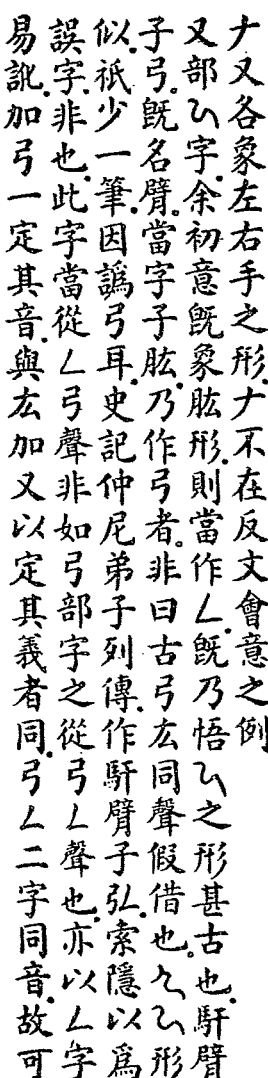 𠂇又各象左右手之形𠂇不在反文會意之例
又部𠃋字余初意旣象肱形則當作𠃋旣乃悟𠃋之形甚古也馯臂
子弓旣名臂當字子肱乃作弓者非曰古弓厷同聲假借也𠃋𠃋形
似祇少一筆因譌弓耳史記仲尼弟子列傳作馯臂子弘索隱以爲
誤字非也此字當從𠃋弓聲非如弓部字之從弓𠃋聲也亦以𠃋字
易訛加弓一定其音與厷加又以定其義者同弓𠃋二字同音故可